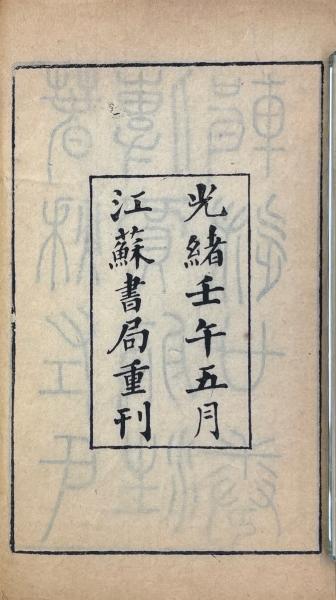 光緒壬午五月
江蘇書局重刊